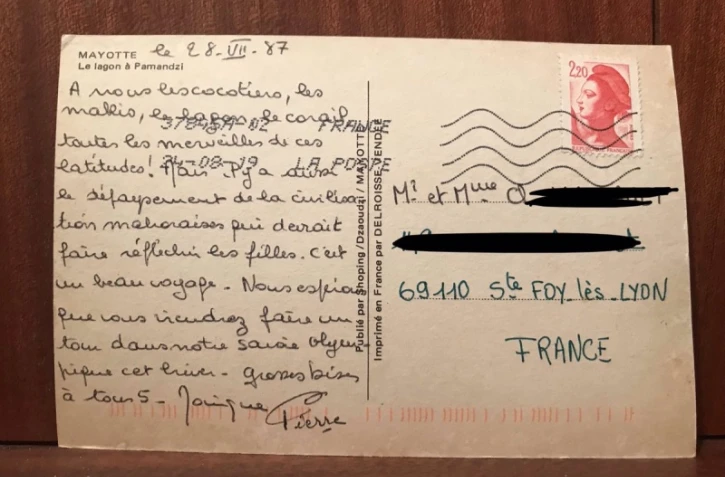 MAYOTTE
Le lagon à Pamandzi
le 28-VII-87
A nous les cocotiers, les
makis, le lagon, le corail
toutes les merveilles de ces
latitudes! Mais il y a aussi
le dépaysement de la civilisa
tion mahoraises qui devrait
faire réfléchir les filles. C'est
un beau voyage - Nous espérons
que vous viendrez faire un
tour dans notre Savoie Olym-
pique cet hiver - grosses bises
à tous 5 -
Pierre
37845A-02 FRANCE
24-08-19 LA POSTE
Publié par Shoping/Dzaoudzi/MAYOTTE
Imprimé en France par DELROISSE VENDÉE
2,20
Mr et Mme
69110 Ste FOY-lès-LYON
FRANCE